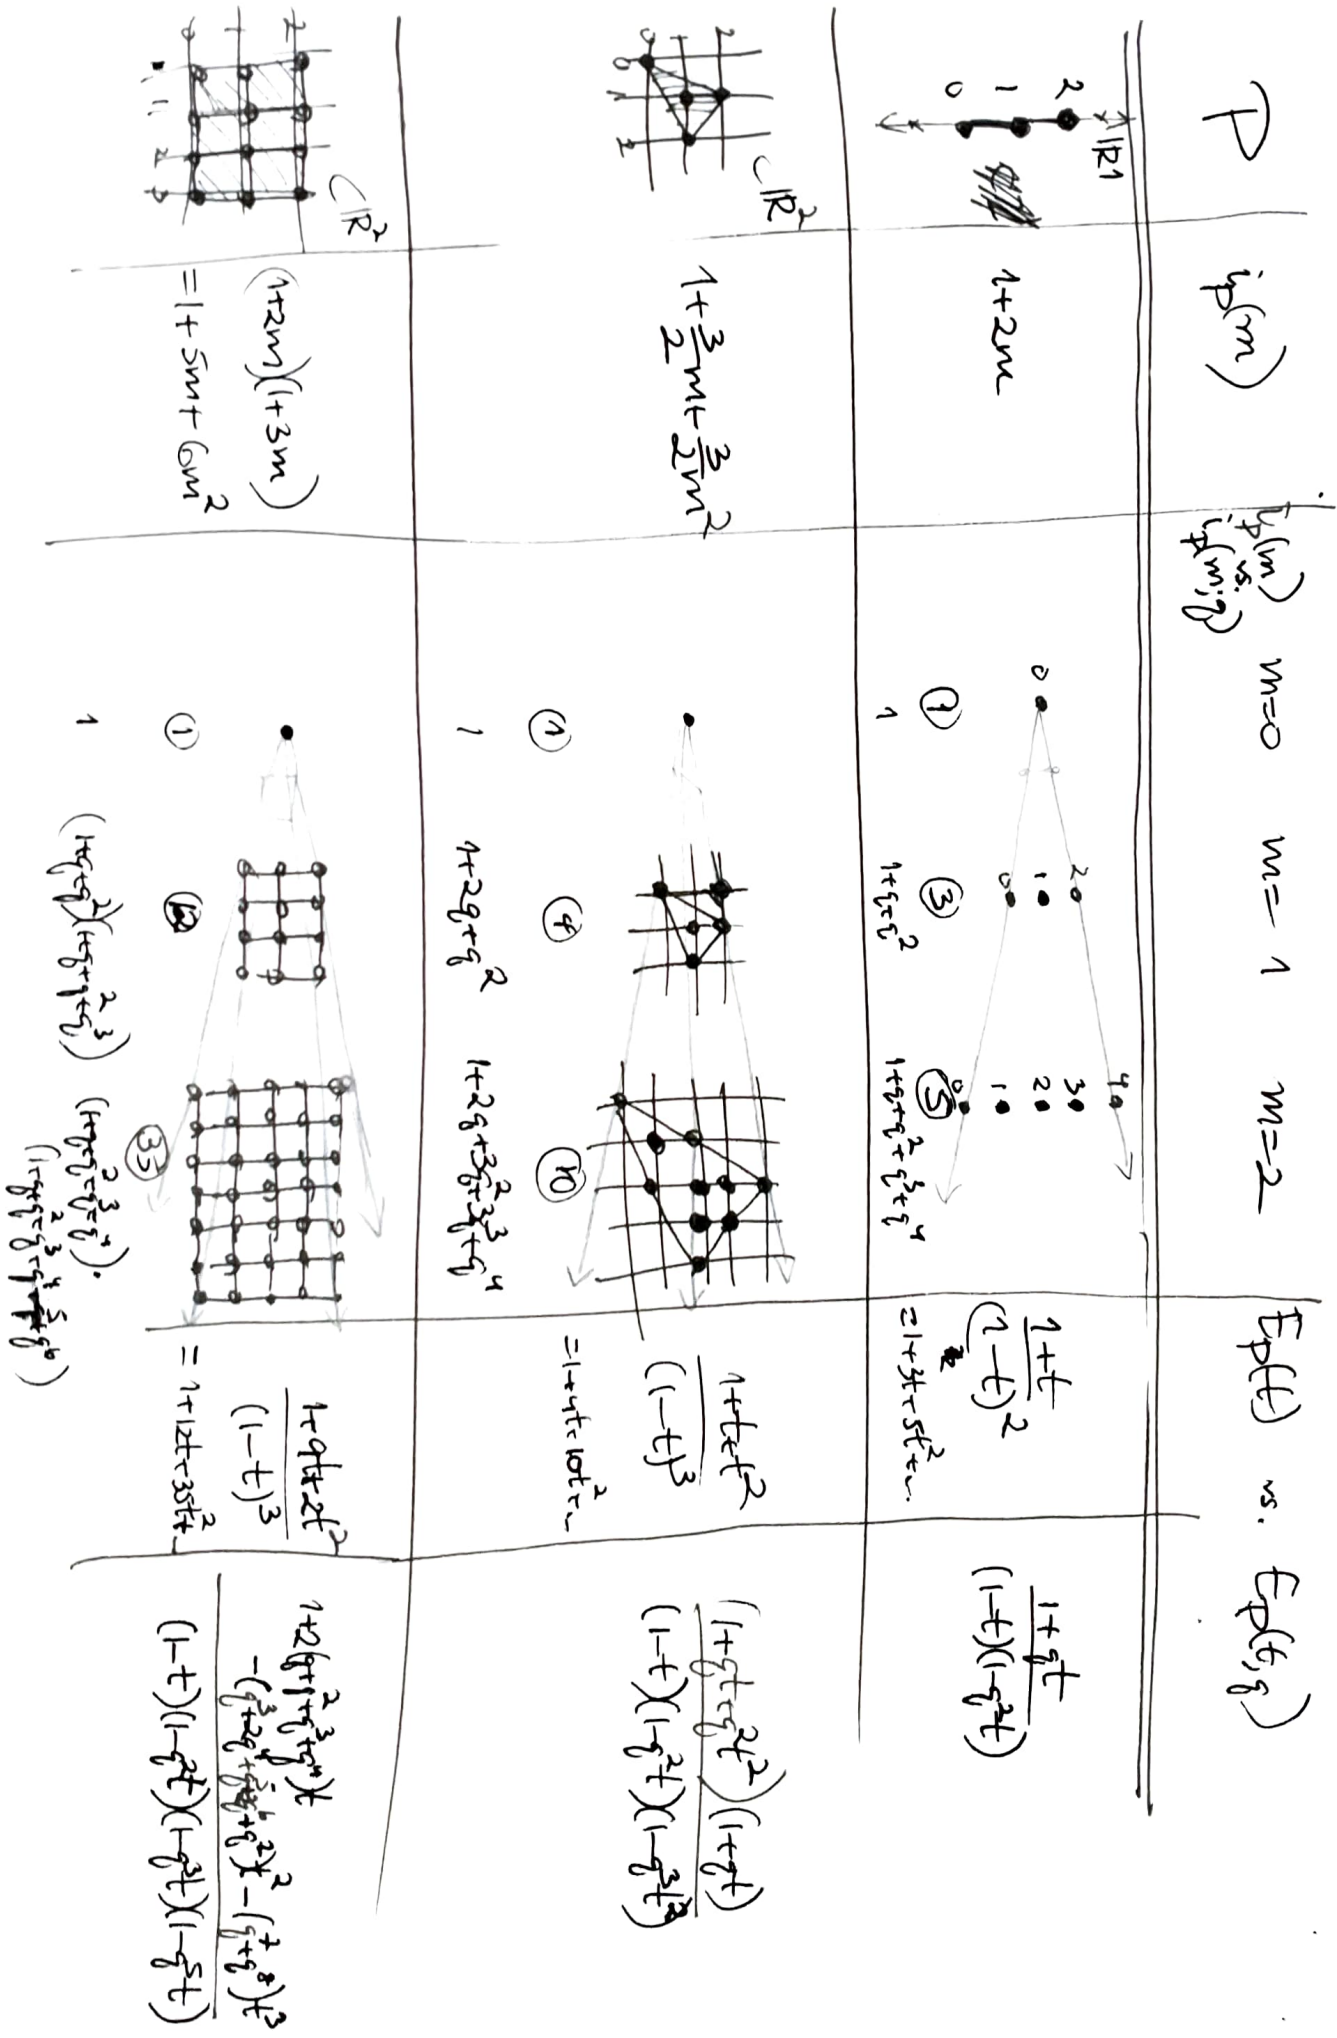 P i_p(m) i_p(m) vs. i_p(m;q) m=0 m=1 m=2 E_p(t) vs. E_p(t,q)
ℝ1
0 1 2
1+2m
0
0 1 2
0 1 2 3 4
① ③ ⑤
1 1+q+q² 1+q+q²+q³+q⁴
1+t / (1-t)²
=1+3t+5t²+...
1+qt / (1-t)(1-q²t)
⊂ℝ²
0 1 2
0 1 2
1+3/2m+3/2m²
① ④ ⑩
1 1+2q+q² 1+2q+3q²+3q³+q⁴
1+t+t² / (1-t)³
=1+4t+10t²+...
(1+qt+q²t²)(1+qt) / (1-t)(1-q²t)(1-q³t²)
⊂ℝ²
0 1 2
1 2 3
(1+2m)(1+3m)
=1+5m+6m²
① ⑫ ㉟
1 (1+q+q²)(1+q+q²+q³) (1+q+q²+q³+q⁴)·
(1+q+q²+q³+q⁴+q⁵+q⁶)
1+9t+2t² / (1-t)³
=1+12t+35t²+
1+2(q+q²+q³+q⁴)t
-(q³+2q⁴+ t²-(q⁷+q⁸)t³
(1-t)(1-q²t)(1-q³t)(1-q⁵t)